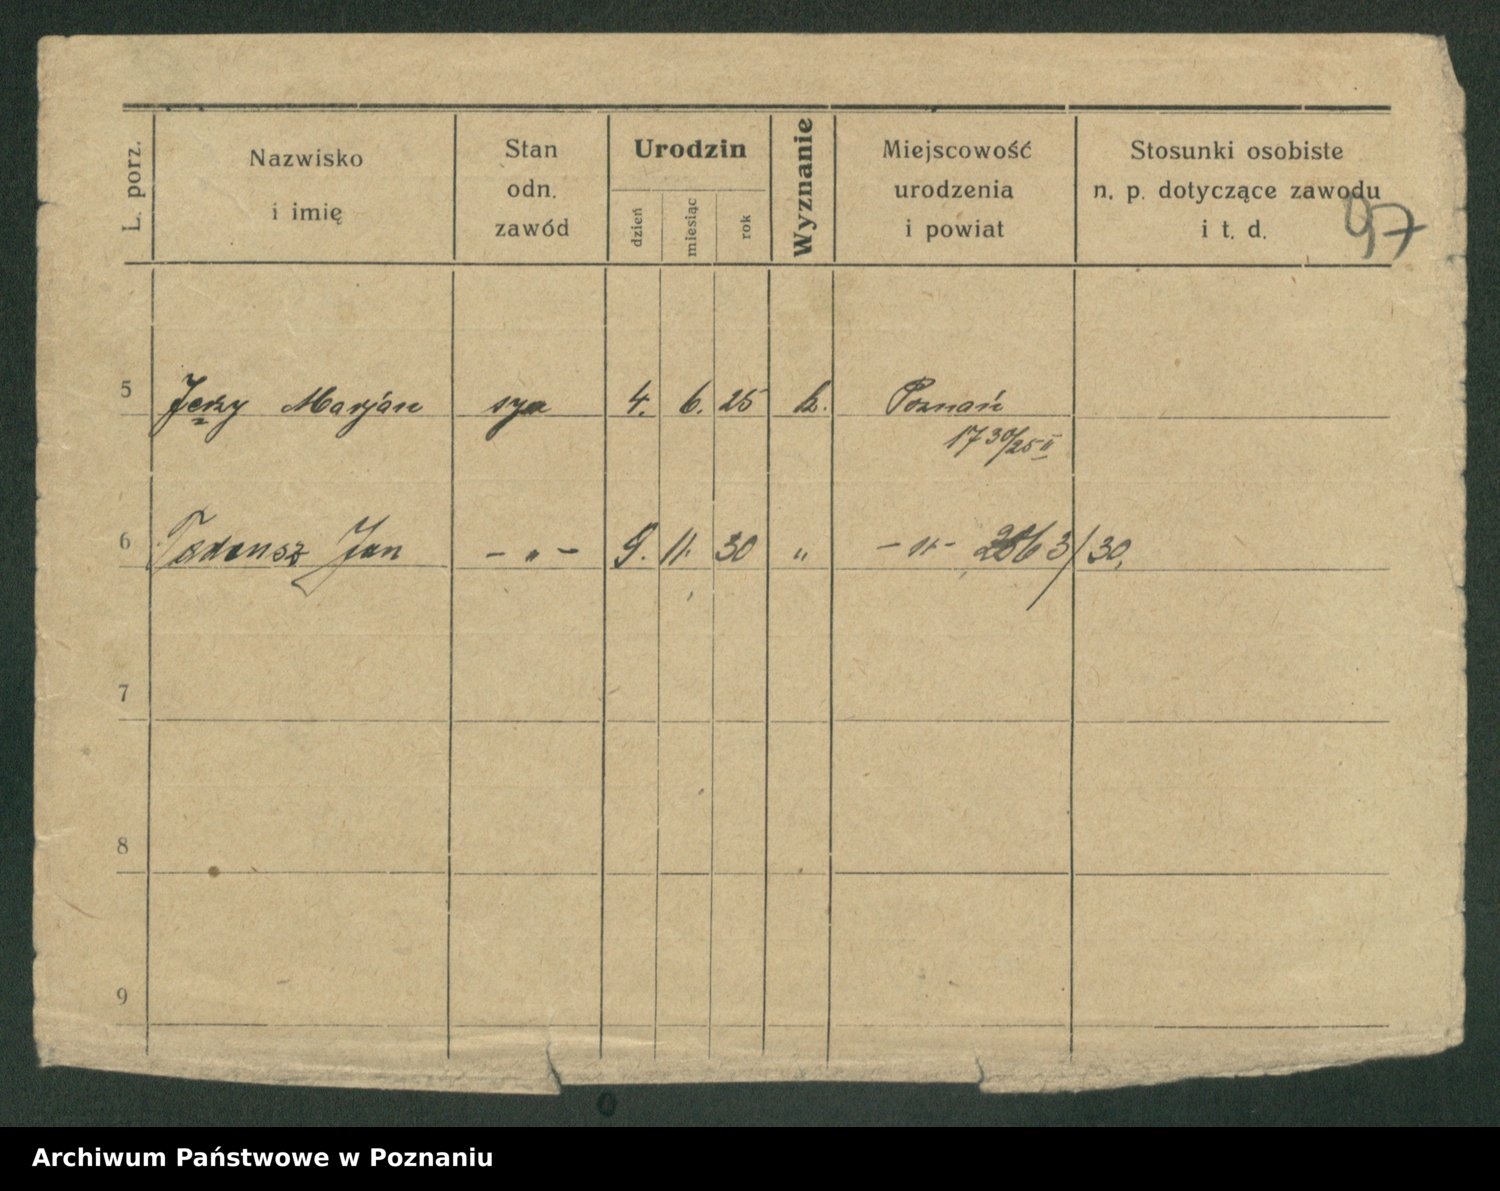 L. porz.
Nazwisko
i imię
Stan
odn.
zawód
Urodzin
dzień
miesiąc
rok
Wyznanie
Miejscowość
urodzenia
i powiat
Stosunki osobiste
n. p. dotyczące zawodu
i t. d.
97
5 Jerzy Marjan syn 4. 6. 25 k. Poznań
1730/25 II
6 Tadeusz Jan – „ – 9. 11. 30 „ – „ – 2063/30.
7
8
9
Archiwum Państwowe w Poznaniu